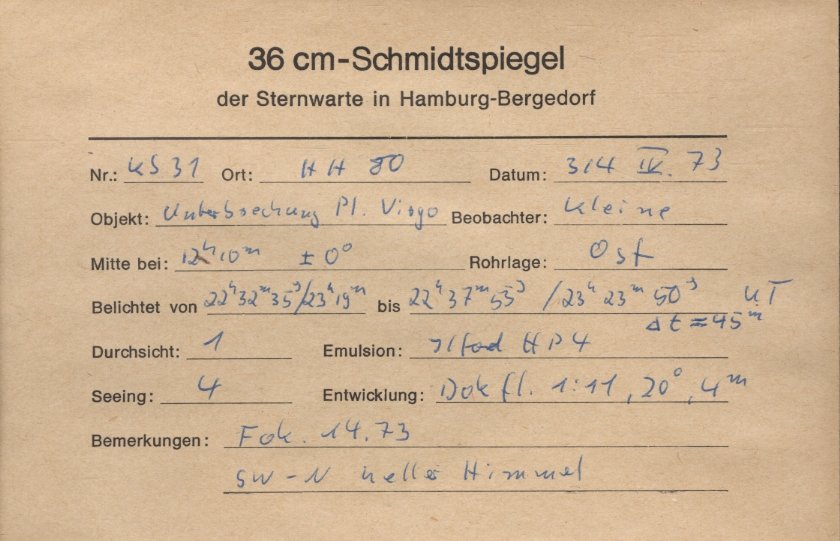 36 cm-Schmidtspiegel
der Sternwarte in Hamburg-Bergedorf
Nr.: KS 31 Ort: HH 80 Datum: 3/4 IV. 73
Objekt: Unterbrechung Pl. Virgo Beobachter: Kleine
Mitte bei: 12h 10m ± 0° Rohrlage: Ost
Belichtet von 22h 32m 35s/23h 19m bis 22h 37m 55s / 23h 23m 50s UT
Δt = 45m
Durchsicht: 1 Emulsion: Ilford HP4
Seeing: 4 Entwicklung: Dok fl. 1:11, 20°, 4m
Bemerkungen: Fok. 14.73
SW-N heller Himmel